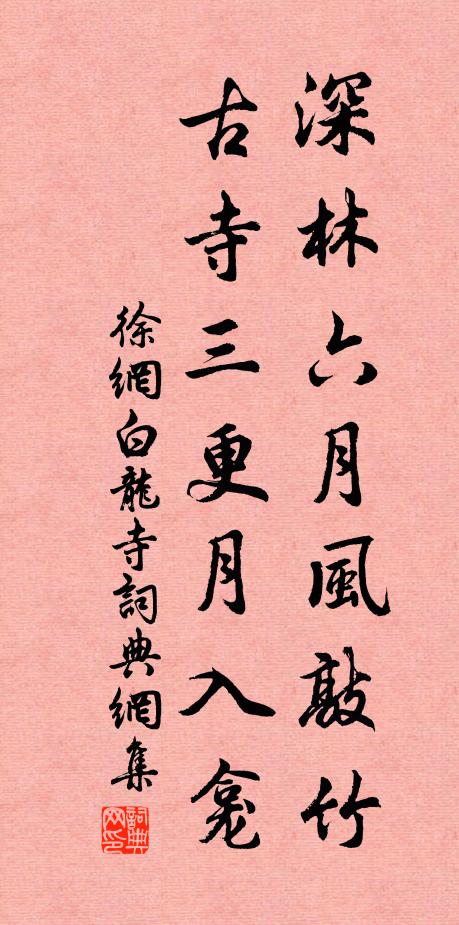 深林六月風敲竹
古寺三更月入龕
徐網白龍寺詞典網集
詞典网印